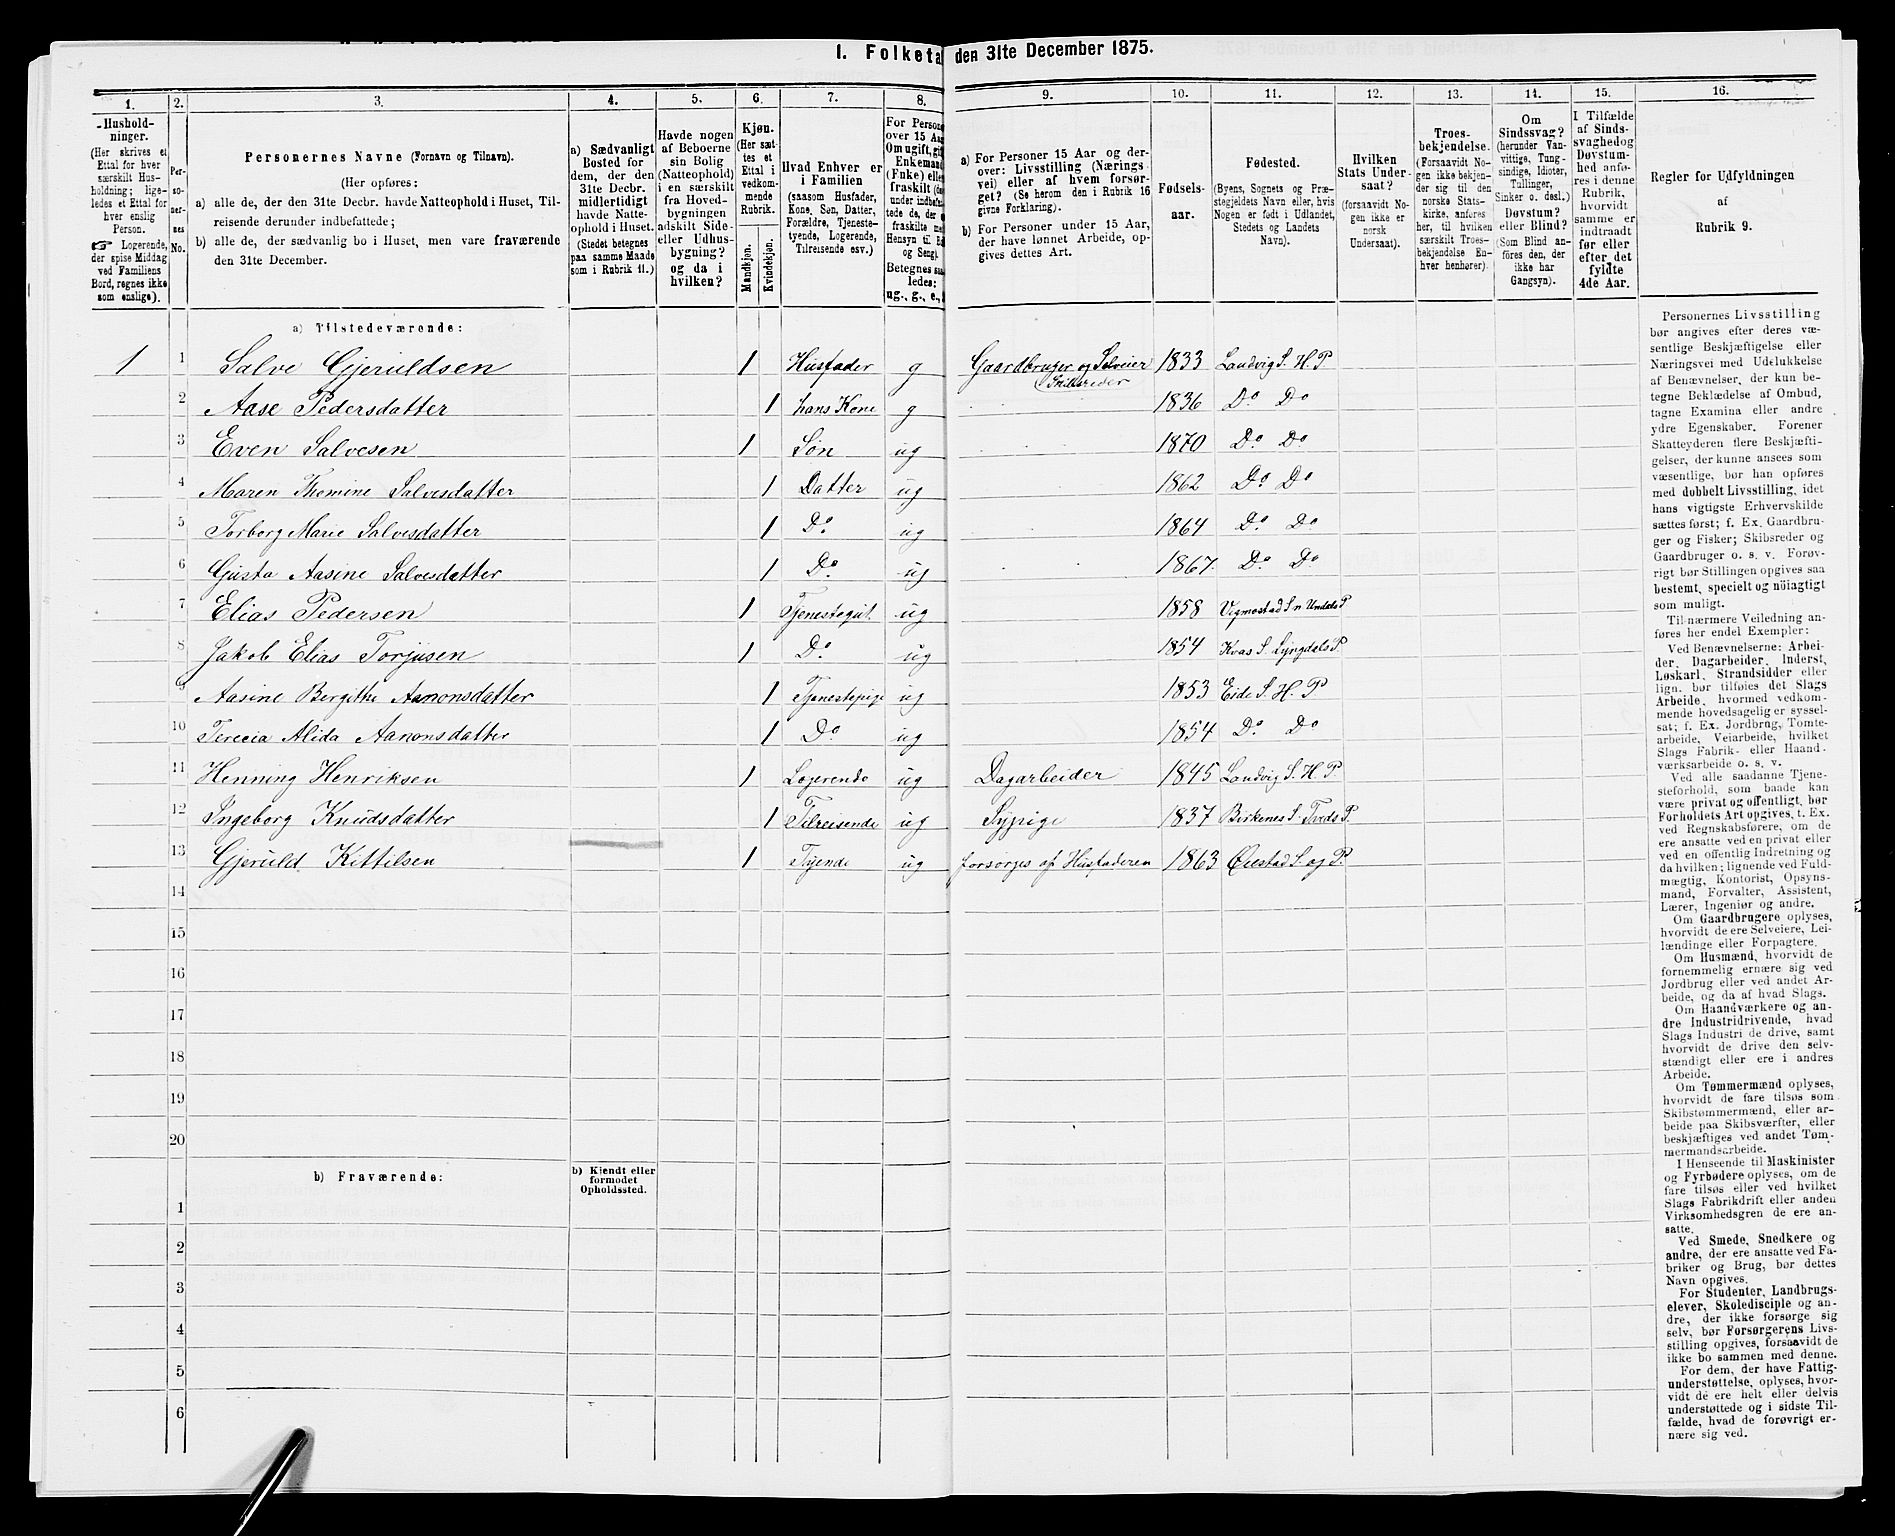 I. Folketal den 31te December 1875.
1. 2. 3. 4. 5. 6. 7. 8. 9. 10. 11. 12. 13. 14. 15. 16.
Hushold-
ninger.
(Her skrives et
Ettal for hver
særskilt Hus-
holdning; lige-
ledes et Ettal for
hver enslig
Person.
☞ Logerende,
der spise Middag
ved Familiens
Bord, regnes ikke
som enslige).
Per-
so-
ner-
nes
No.
Personernes Navne (Fornavn og Tilnavn).
(Her opføres:
a) alle de, der den 31te Decbr. havde Natteophold i Huset, Til-
reisende derunder indbefattede;
b) alle de, der sædvanlig bo i Huset, men vare fraværende
den 31te December.
a) Sædvanligt
Bosted for
dem, der den
31te Decbr.
midlertidigt
havde Natte-
ophold i Huset.
(Stedet betegnes
paa samme Maade
som i Rubrik 11.)
Havde nogen
af Beboerne
sin Bolig
(Natteophold)
i en særskilt
fra Hoved-
bygningen
adskilt Side-
eller Udhus-
bygning?
og da i
hvilken?
Kjøn.
(Her sæt-
tes et
Ettal i
vedkom-
mende
Rubrik.
Mandkjøn.
Kvindekjøn.
Hvad Enhver er
i Familien
(saasom Husfader,
Kone, Søn, Datter,
Forældre, Tjeneste-
tyende, Logerende,
Tilreisende osv.)
For Persone
over 15 Aa
Om ugift, gif
Enkemand
(Enke) elle
fraskilt (de
under indbefa
tede de, der
fraskilte me
Hensyn til B
og Seng).
Betegnes saa
ledes:
ug., g., e.,
a) For Personer 15 Aar og der-
over: Livsstilling (Nærings
vei) eller af hvem forsør-
get? (Se herom den i Rubrik 16
givne Forklaring).
b) For Personer under 15 Aar,
der have lønnet Arbeide, op-
gives dettes Art.
Fødsels-
aar.
Fødested.
(Byens, Sognets og Præ-
stegjeldets Navn eller, hvis
Nogen er født i Udlandet,
Stedets og Landets
Navn).
Hvilken
Stats Under-
saat?
(forsaavidt No-
gen ikke er
norsk
Undersaat).
Troes-
bekjendelse.
(Forsaavidt No-
gen ikke bekjen-
der sig til den
norske Stats-
kirke, anføres
her, til hvilken
særskilt Troes-
bekjendelse En-
hver henhører).
Om
Sindssvag?
(herunder Van-
vittige, Tung-
sindige, Idioter,
Tullinger,
Sinker o. desl.)
Døvstum?
eller Blind?
(Som Blind an-
føres den, der
ikke har
Gangsyn).
I Tilfælde
af Sinds-
svaghed og
Døvstum-
hed anfø-
res i denne
Rubrik,
hvorvidt
samme er
indtraadt
før eller
efter det
fyldte
4de Aar.
Regler for Udfyldningen
af
Rubrik 9.
a) Tilstedeværende:
1 1 Salve Gjeruldsen 1 Husfader g Gaardbruger og Selveier 1833 Landvig S. H. P
Skibsreder
2 Aase Pedersdatter 1 hans Kone g 1836 Do Do
3 Even Salvesen 1 Søn ug 1870 Do Do
4 Maren Themine Salvesdatter 1 Datter ug 1862 Do Do
5 Torborg Marie Salvesdatter 1 Do ug 1864 Do Do
6 Gusta Aasine Salvesdatter 1 Do ug 1867 Do Do
7 Elias Pedersen 1 Tjenestegut ug 1858 Vigmostad S n Undals P
8 Jakob Elias Torjusen 1 Do ug 1854 Kvas S. Lyngdals P.
9 Aasine Bergithe Aanonsdatter 1 Tjenestepige ug 1853 Eide S. H. P
10 Terecia Alida Aanonsdatter 1 Do ug 1854 Do Do
11 Henning Henriksen 1 Logerende ug Dagarbeider 1845 Landvig S. H. P.
12 Ingeborg Knudsdatter 1 Tilreisende ug Sypige 1837 Birkenes S. Tveds P.
13 Gjeruld Kittilsen 1 Tyende ug forsørges af Husfaderen 1863 Øiestad S. og P.
14
15
16
17
18
19
20
b) Fraværende:
b) Kjendt eller
formodet
Opholdssted.
1
2
3
4
5
6
Personernes Livsstilling
bør angives efter deres væ-
sentlige Beskjæftigelse eller
Næringsvei med Udelukkelse
af Benævnelser, der kun be-
tegne Beklædelse af Ombud,
tagne Examina eller andre
ydre Egenskaber. Forener
Skatteyderen flere Beskjæfti-
gelser, der kunne ansees som
væsentlige, bør han opføres
med dobbelt Livsstilling, idet
hans vigtigste Erhvervskilde
sættes først; f. Ex. Gaardbru-
ger og Fisker; Skibsreder og
Gaardbruger o. s. v. Forøv-
rigt bør Stillingen opgives saa
bestemt, specielt og nöiagtigt
som muligt.
Til nærmere Veiledning an-
føres her endel Exempler:
Ved Benævnelserne: Arbei-
der, Dagarbeider, Inderst,
Løskarl, Strandsidder eller
lign. bør tilføies det Slags
Arbeide, hvormed vedkom-
mende hovedsagelig er syssel-
sat; f. Ex. Jordbrug, Tomte-
arbeide, Veiarbeide, hvilket
Slags Fabrik- eller Haand-
værksarbeide o. s. v.
Ved alle saadanne Tjene-
steforhold, som baade kan
være privat og offentligt, bør
Forholdets Art opgives, t. Ex.
ved Regnskabsførere, om de
ere ansatte ved en privat eller
ved en offentlig Indretning og
da hvilken; lignende ved Fuld-
mægtig, Kontorist, Opsyns-
mand, Forvalter, Assistent,
Lærer, Ingeniør og andre.
Om Gaardbrugere oplyses,
hvorvidt de ere Selveiere, Lei-
lændinge eller Forpagtere.
Om Husmænd, hvorvidt de
fornemmelig ernære sig ved
Jordbrug eller ved andet Ar-
beide, og da af hvad Slags.
Om Haandværkere og an-
dre Industridrivende, hvad
Slags Industri de drive, samt
hvorvidt de drive den selv-
stændigt eller ere i andres
Arbeide.
Om Tømmermænd oplyses,
hvorvidt de fare tilsøs som
Skibstømmermænd, eller ar-
beide paa Skibsværfter, eller
beskjæftiges ved andet Tøm-
mermandsarbeide.
I Henseende til Maskinister
og Fyrbødere oplyses, om de
fare tilsøs eller ved hvilket
Slags Fabrikdrift eller anden
Virksomhedsgren de ere an-
satte.
Ved Smede, Snedkere og
andre, der ere ansatte ved Fa-
briker og Brug, bør dettes
Navn opgives.
For Studenter, Landbrugs-
elever, Skoledisciple og an-
dre, der ikke forsørge sig
selv, bør Forsørgerens Livs-
stilling opgives, forsaavidt de
ikke bo sammen med denne.
For dem, der have Fattig-
understøttelse, oplyses, hvor-
vidt de ere helt eller delvis
understøttede og i sidste Til-
fælde, hvad de forøvrigt er-
nære sig ved.